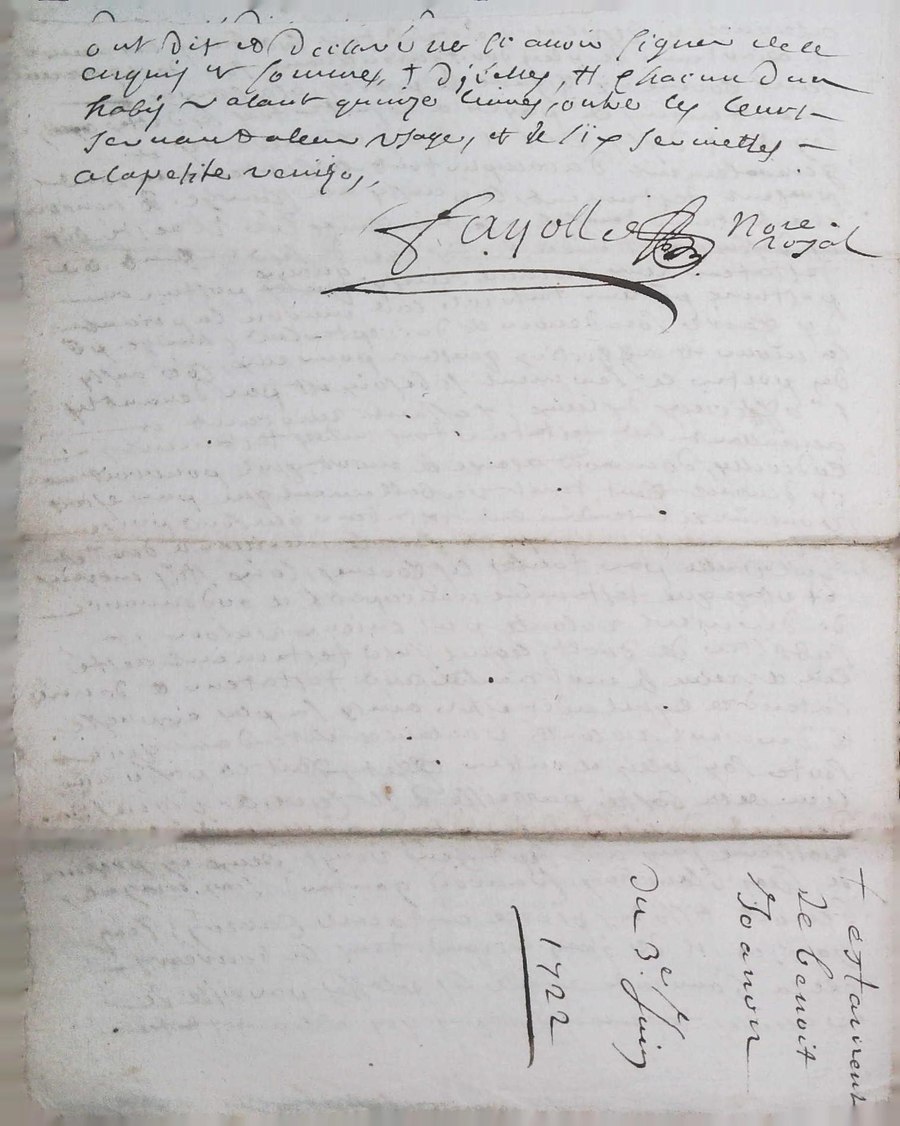 ont dit et declaré ne scavoir signer de ce
enquis et sommes, + d'jcelles, # chacun d'un
habis valant quinze livres, outre les leurs
servant a leur usage, et de six serviettes
a la petite venize,
Fayolle Nore
royal
testament
de benoit
Joanon
du 3e Juin
1722